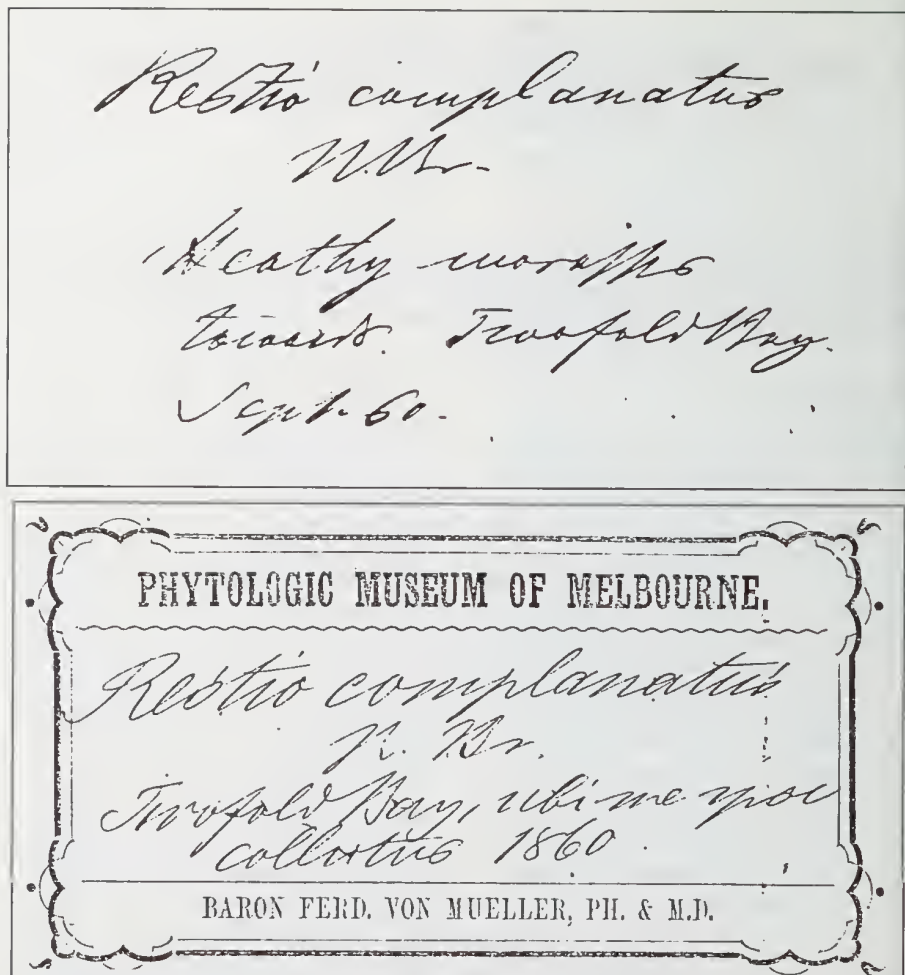 Restio complanatus
R. Br.
Heathy morasses
towards Twofold Bay.
Sept. 60.
PHYTOLOGIC MUSEUM OF MELBOURNE.
Restio complanatus
R. Br.
Twofold Bay, ubi me
collectus 1860.
BARON FERD. VON MUELLER, PH. & M.D.